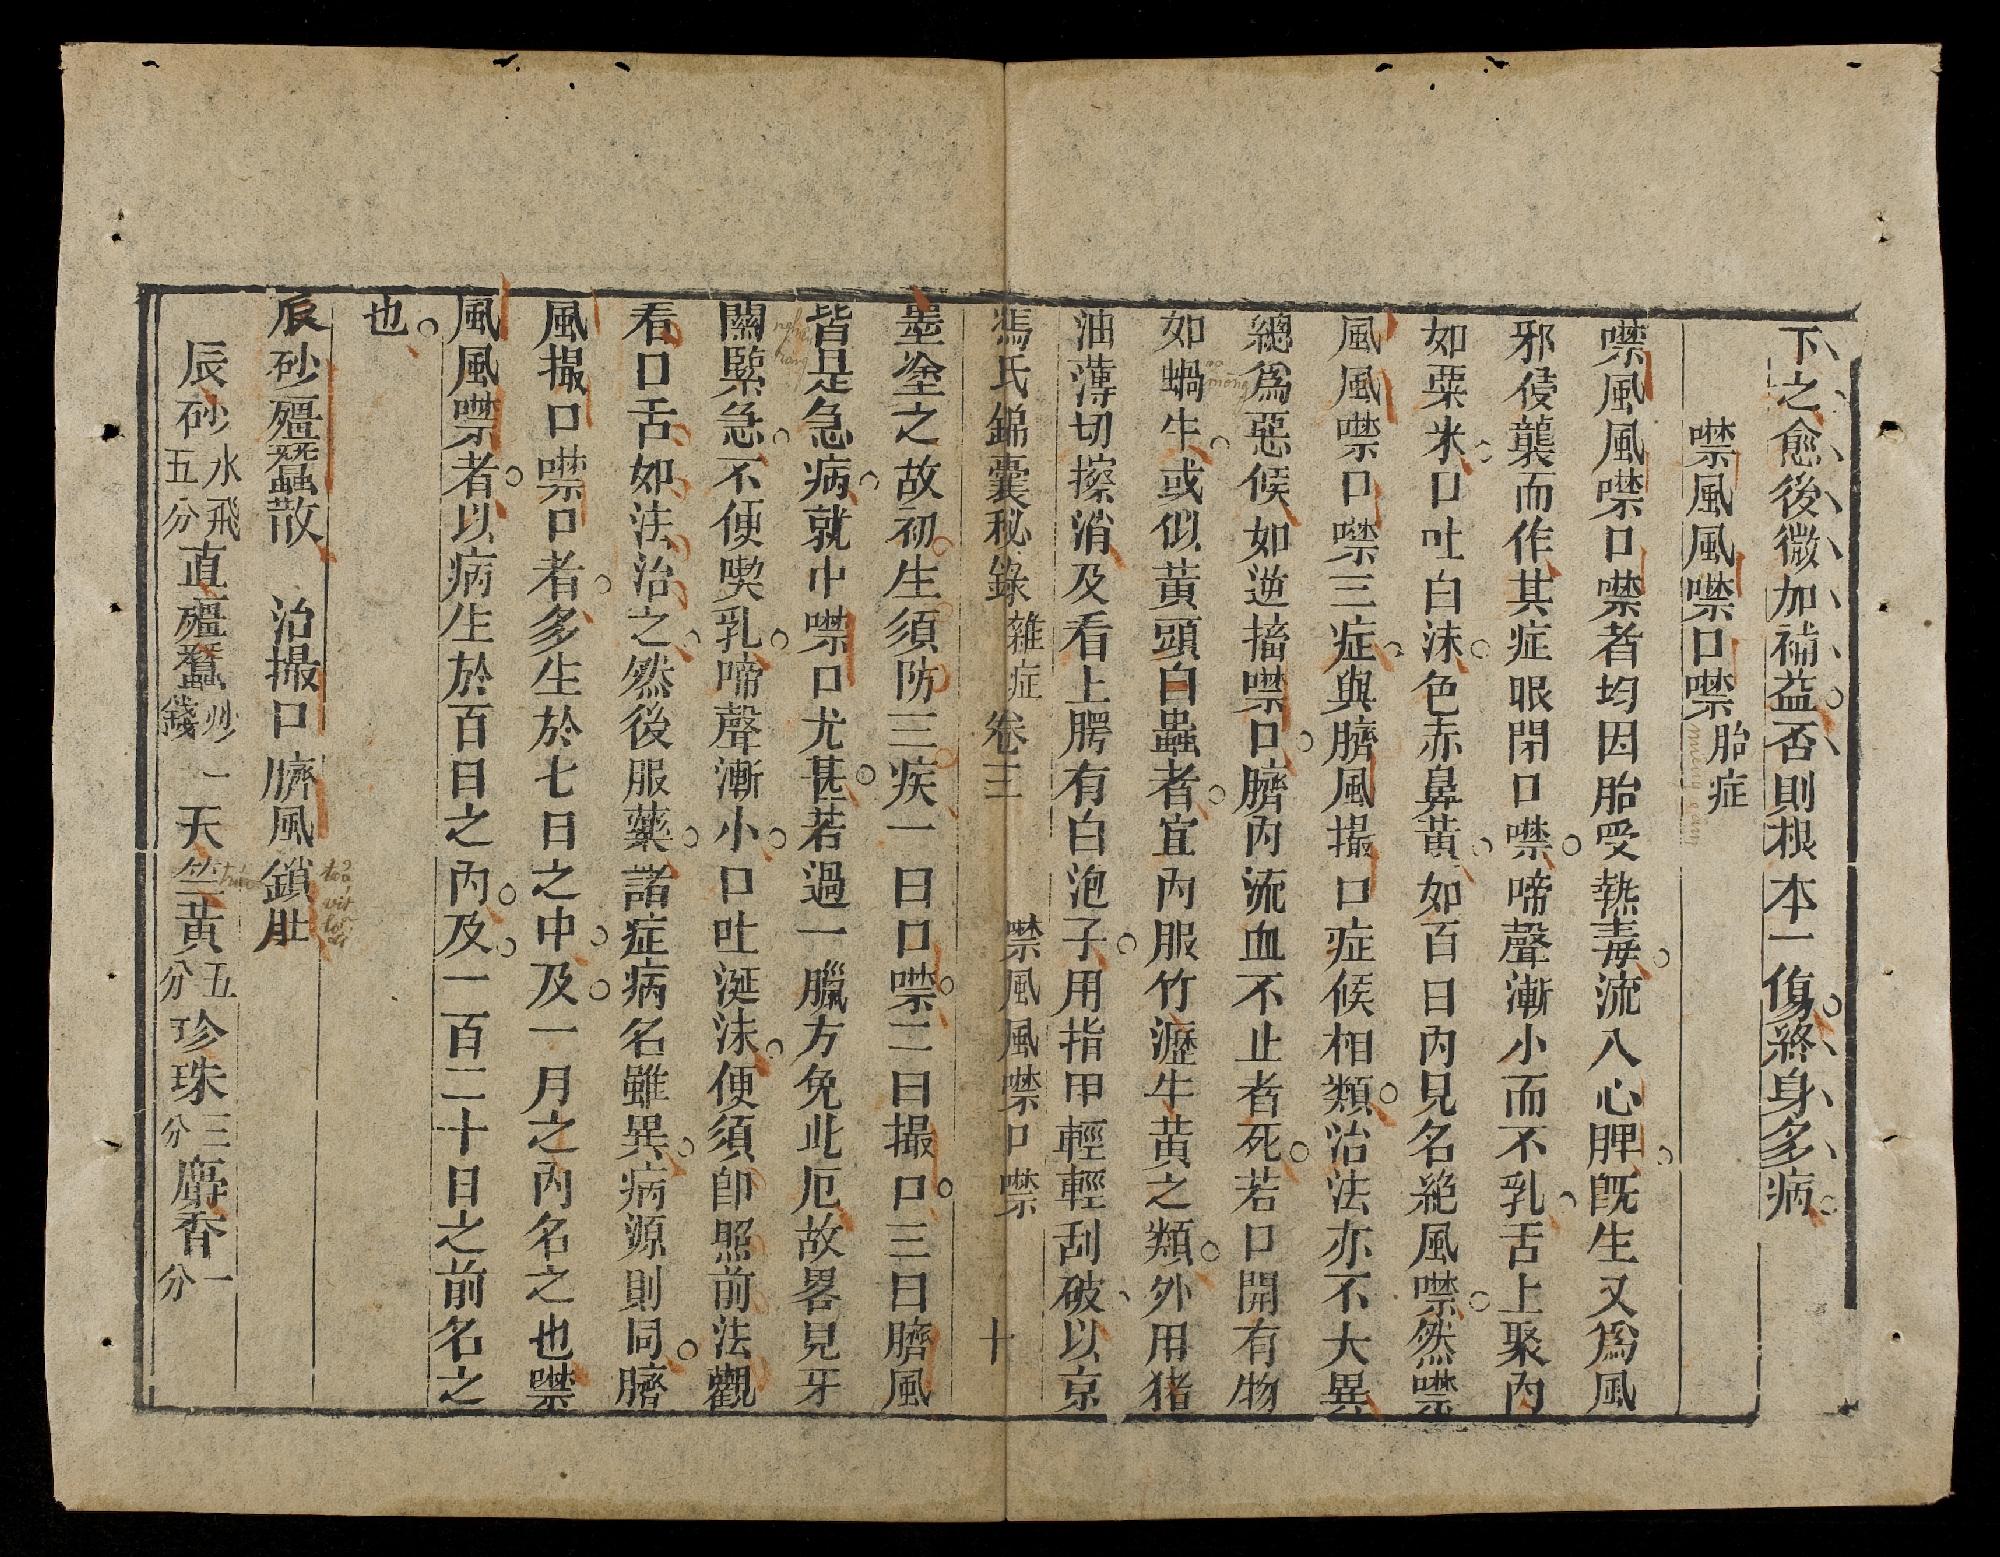 下之愈後微加補益否則根本一傷終身多病
噤風風噤口噤胎症
噤風風噤口噤者均因胎受熱毒流入心脾既生又爲風
邪侵襲而作其症眼閉口噤啼聲漸小而不乳舌上聚肉
如粟米口吐白沫色赤鼻黃如百日內見名絕風噤然噤
風風噤口噤三症與臍風撮口症候相類治法亦不大異
總爲惡候如逆搐噤口臍內流血不止者死若口開有物
如蝸牛或似黃頭白蟲者宜內服竹瀝牛黃之類外用猪
油薄切擦消及看上腭有白泡子用指甲輕輕刮破以京
馮氏錦囊秘錄雜症 卷三 噤風風噤口噤 十
墨塗之故初生須防三疾一曰口噤二曰撮口三曰臍風
皆是急病就中噤口尤甚若過一臘方免此厄故畧見牙
關緊急不便喫乳啼聲漸小口吐涎沫便須卽照前法觀
看口舌如法治之然後服藥諸症病名雖異病源則同臍
風撮口噤口者多生於七日之中及一月之內名之也噤
風風噤者以病生於百日之內及一百二十日之前名之
也
辰砂殭蠶散 治撮口臍風鎖肚
辰砂水飛五分直殭蠶炒一錢天竺黃五分珍珠三分麝香一分